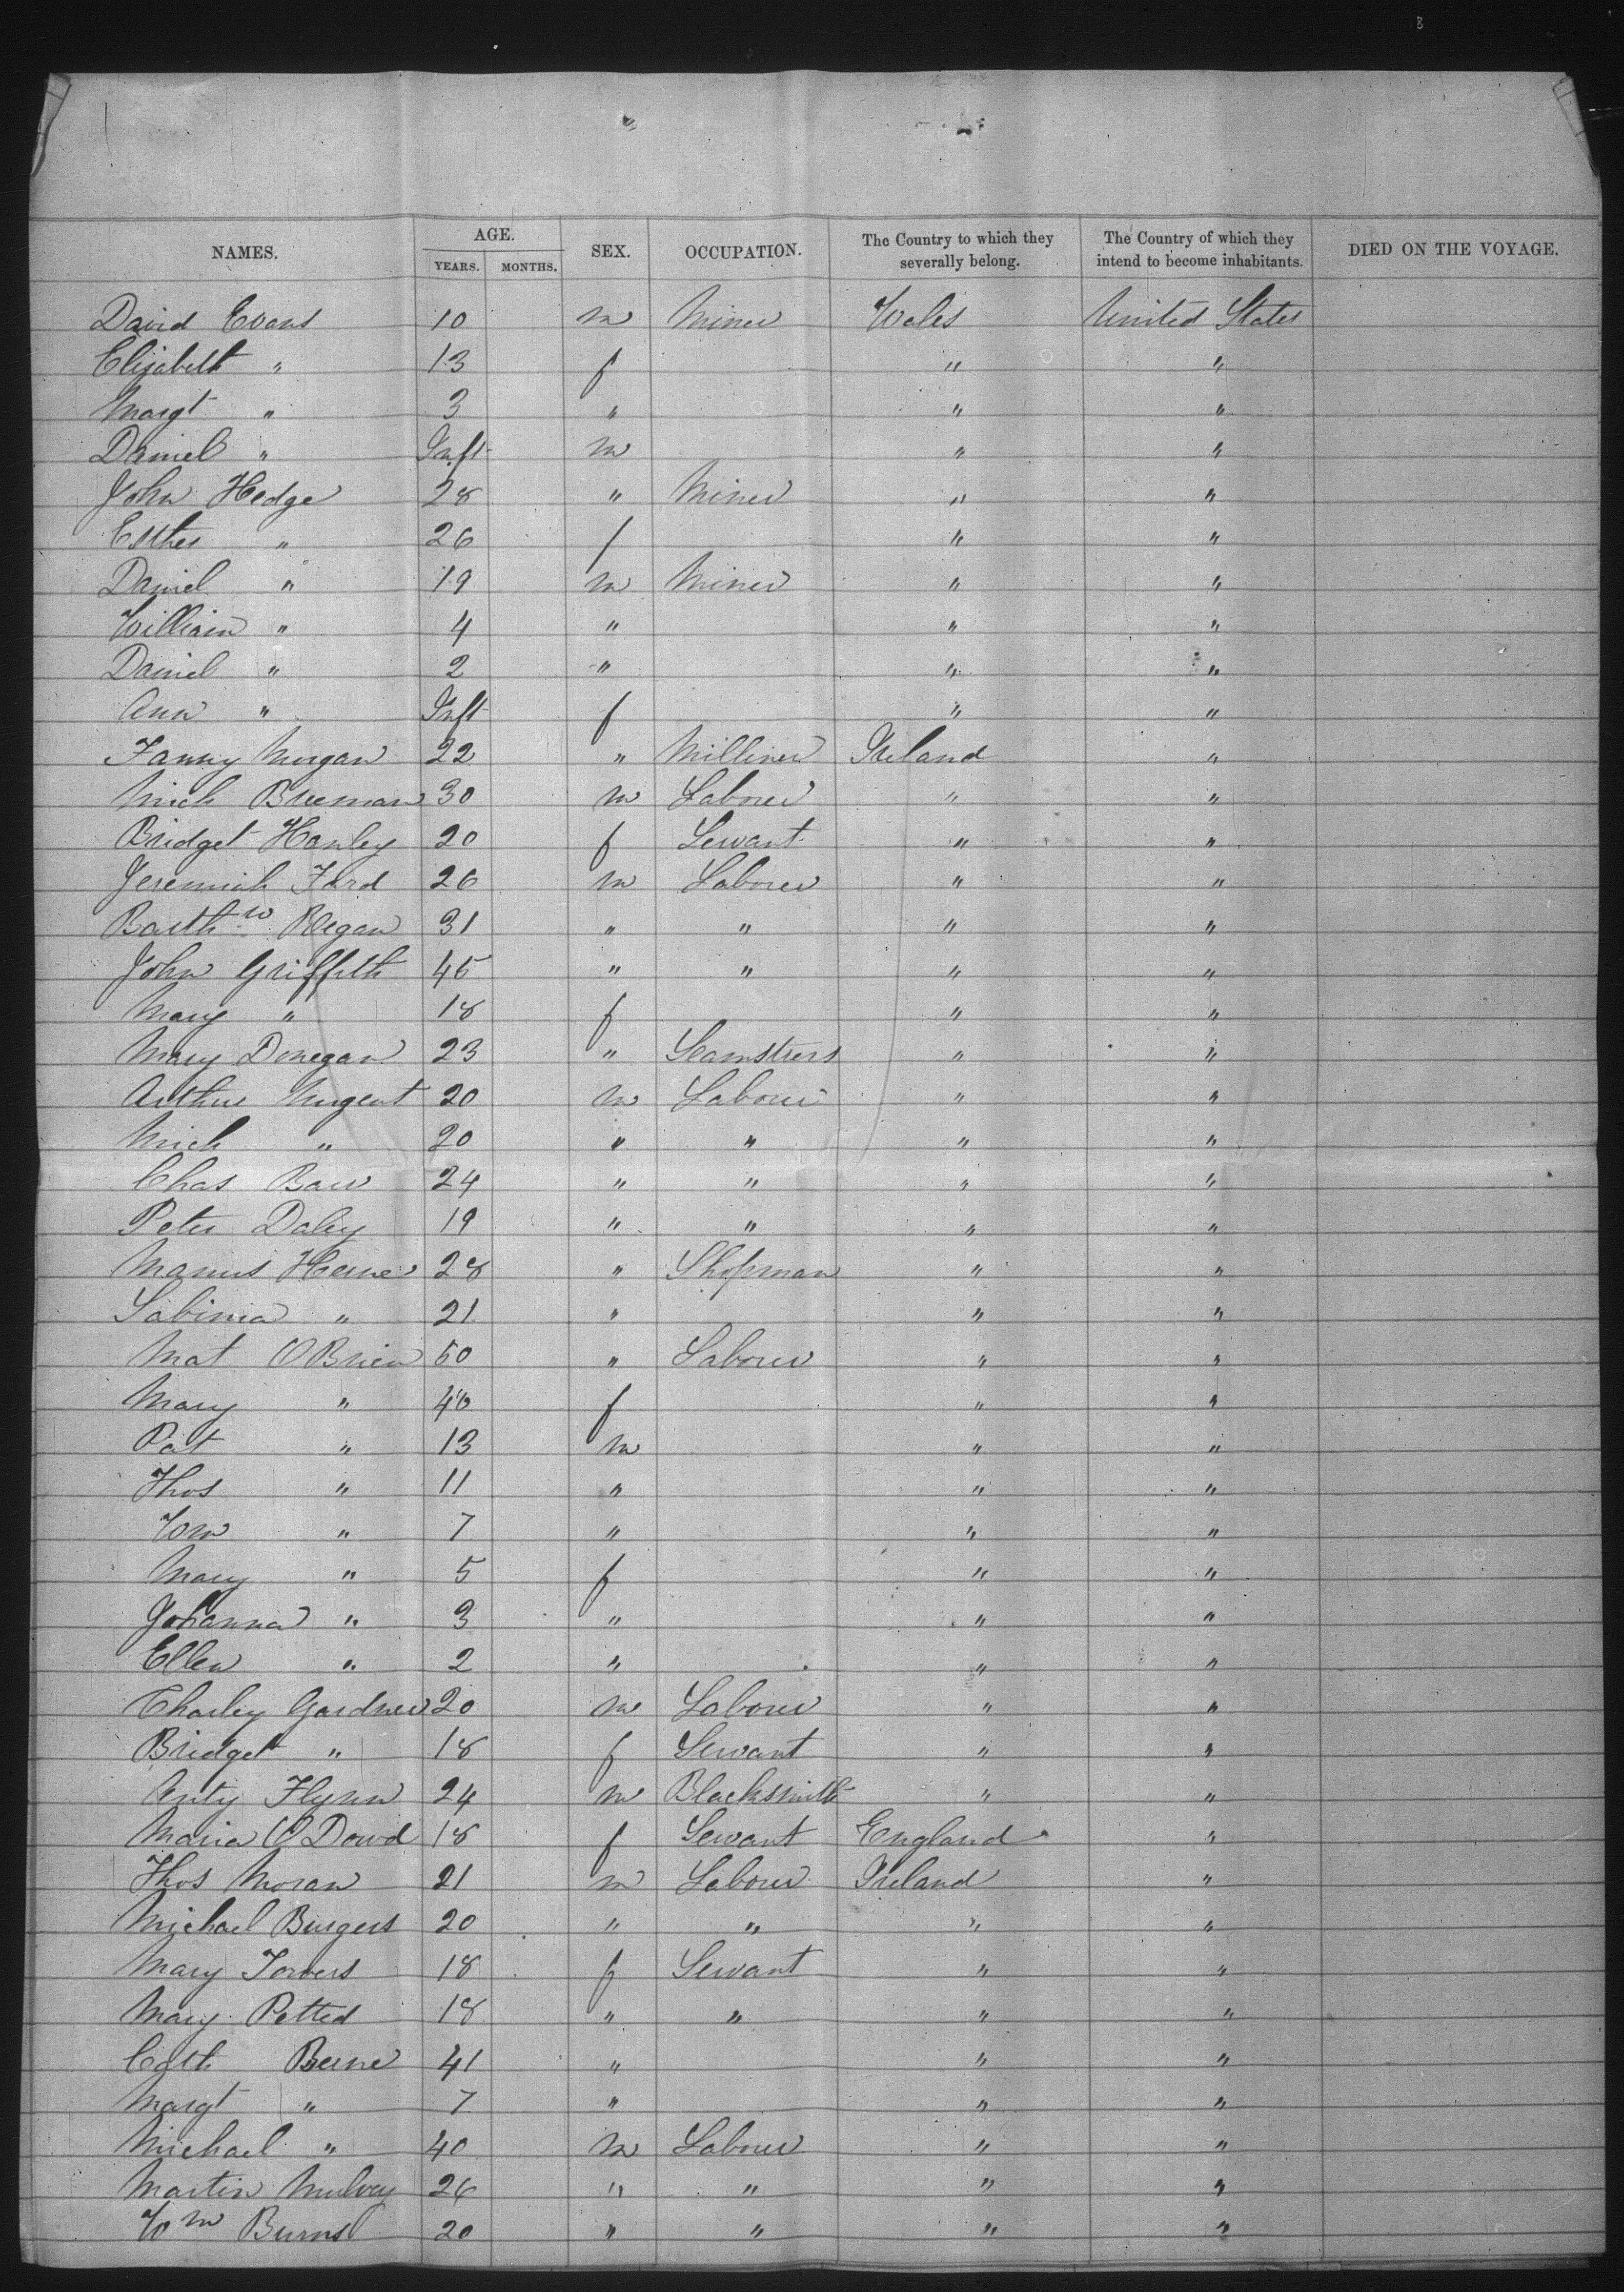 NAMES. AGE. YEARS. MONTHS. SEX. OCCUPATION. The Country to which they severally belong. The Country of which they intend to become inhabitants. DIED ON THE VOYAGE.
David Evans 10 m Miner Wales United States
Elizabeth " 13 f " "
Margt " 3 " " "
Daniel " Inft m " "
John Hedge 28 " Miner " "
Esther " 26 f " "
Daniel " 19 m Miner " "
William " 4 " " "
Daniel " 2 " " "
Ann " Inft f " "
Fanny Morgan 22 " Milliner Ireland "
Mich Breeman 30 m Laborer " "
Bridget Hanley 20 f Servant " "
Jeremiah Ford 26 m Laborer " "
Barthw Regan 31 " " " "
John Griffith 45 " " " "
Mary " 18 f " "
Mary Donegan 23 " Seamstress " "
Arthur Nugent 20 m Laborer " "
Mich " 20 " " " "
Chas Barr 24 " " " "
Peter Daley 19 " " " "
Manus Herne 28 " Shopman " "
Sabinia " 21 " " "
Mat O Brien 50 " Laborer " "
Mary " 40 f " "
Pat " 13 m " "
Thos " 11 " " "
Wm " 7 " " "
Mary " 5 f " "
Johanna " 3 " " "
Ellen " 2 " " "
Charley Gardner 20 m Laborer " "
Bridget " 18 f Servant " "
Anty Flynn 24 m Blacksmith " "
Maria O Dowd 18 f Servant England "
Thos Moran 21 m Laborer Ireland "
Michael Burgess 20 " " " "
Mary Towers 18 f Servant " "
Mary Petted 18 " " " "
Cath Berne 41 " " "
Margt " 7 " " "
Michael " 40 m Laborer " "
Martin Mulvey 26 " " " "
Wm Burns 20 " " " "